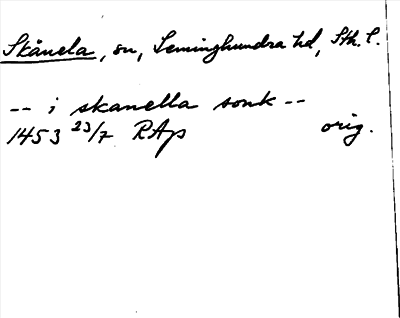 Skånela, sn, Seminghundra hd, Sth. l.
-- i skanella sonk --
1453 23/7 RAp orig.